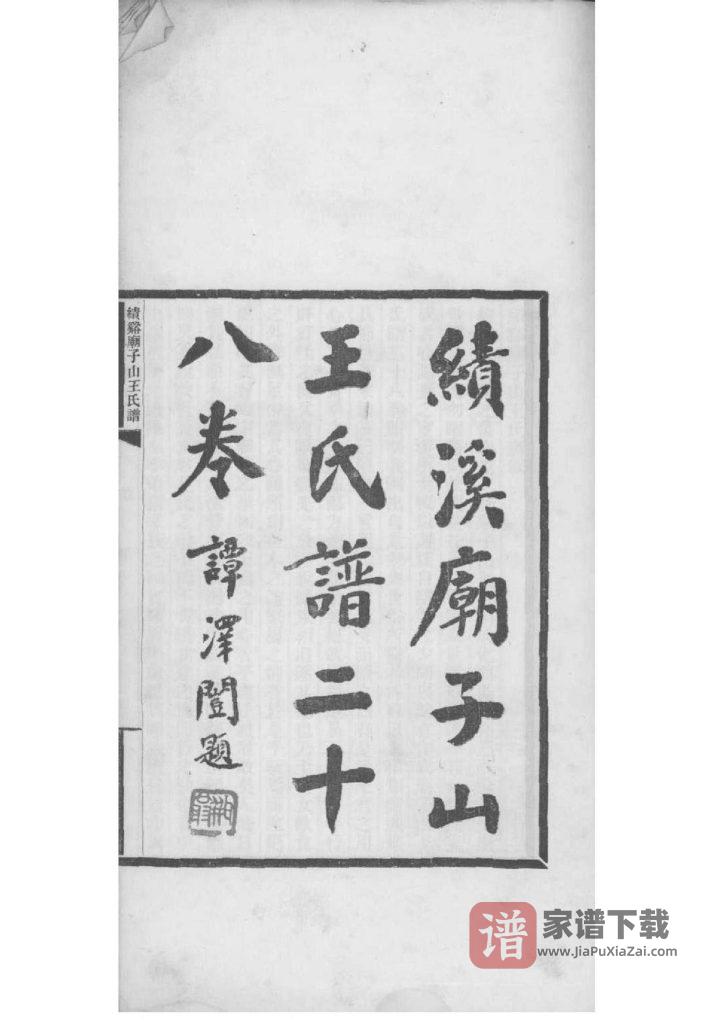 績溪廟子山
王氏譜二十
八卷 譚澤闓題
績谿廟子山王氏譜
谱
家谱下载
www.JiaPuXiaZai.com